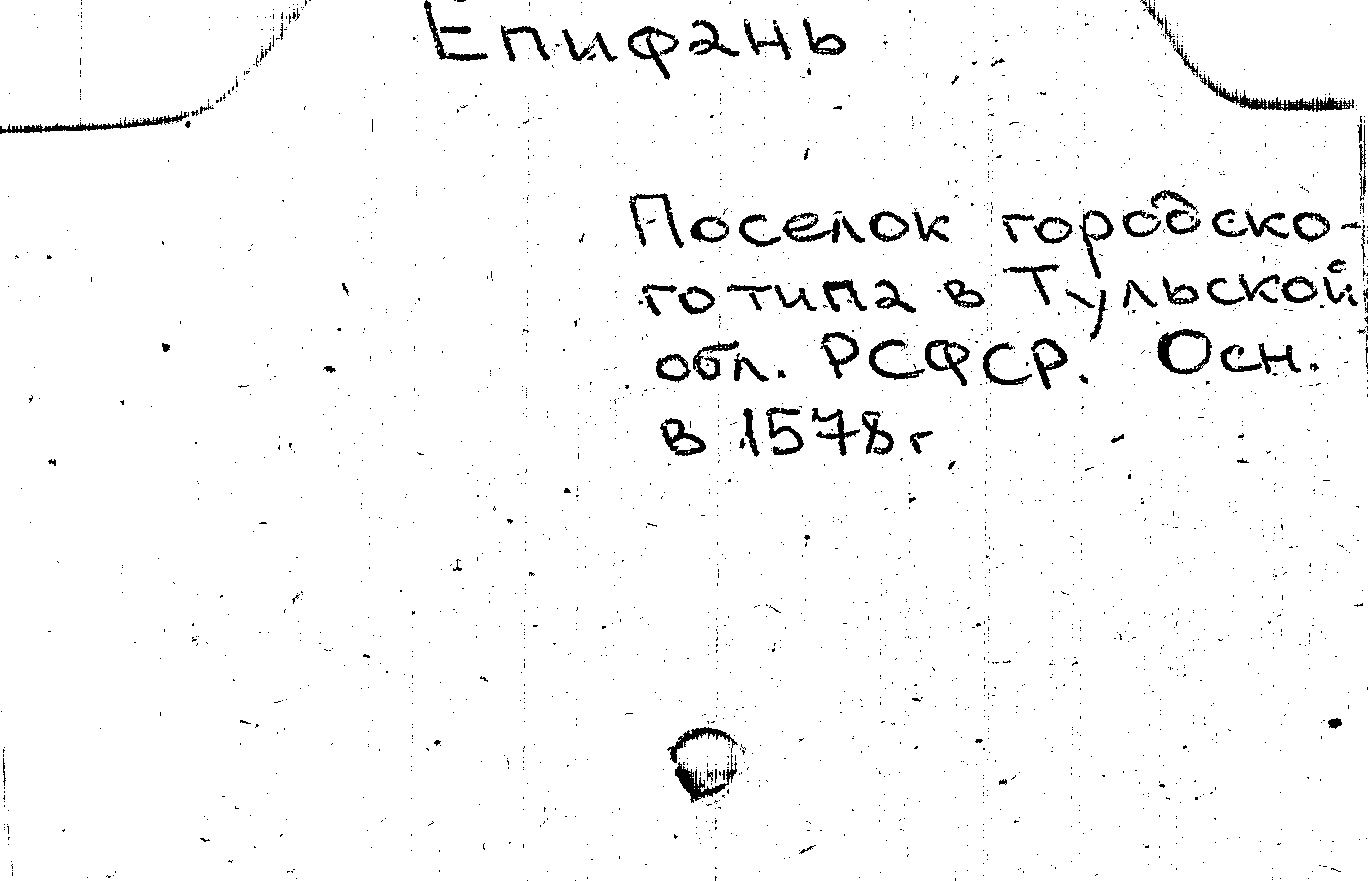 Епифань
Поселок городско-
го типа в Тульской
обл. РСФСР. Осн.
в 1578 г